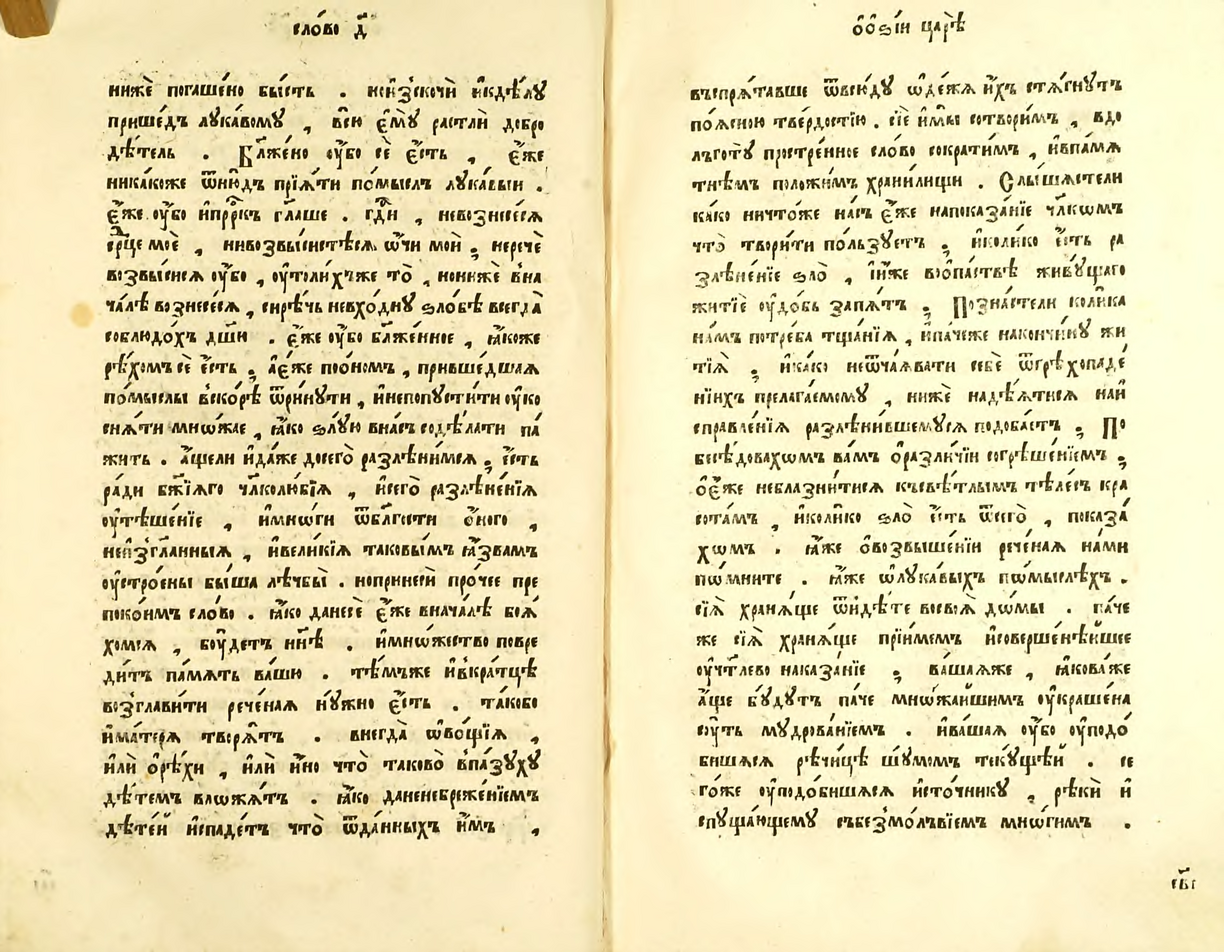 сло́во д҃
нижѐ погаше́но бы́сть . неи҆зскочѝ и҆кдѣ́лꙋ
прише́дъ лꙋка́вомꙋ , всю̀ є҆мꙋ̀ растлѝ добро
дѣ́тель . Бл҃же́но оу҆̀бо сѐ є҆́сть , є҆́же
ника́коже ѿню́дъ прїѧ́ти по́мыслъ лꙋка́выи .
є҆́же оу҆̀бо и҆прⷪ҇ркъ гл҃аше . гдⷭ҇и , невознесе́сѧ
срⷣце моѐ , нивозвысистѣ́сѧ ѡ҆́чи моѝ ; неречѐ
возвы́сисѧ оу҆̀бо , оу҆толи́хъже то̀ , нонижѐ вна
ча́лѣ вознесе́сѧ , си́рѣчь невхо́днꙋ ѕло́бѣ всегда̀
соблюдо́хъ дш҃и . є҆́же оу҆̀бо бл҃же́нное , ꙗ҆́коже
рѣ́хомъ сѐ є҆́сть ; а҆є҆́же поо́номъ , прише́дшаѧ
по́мыслы вско́рѣ ѿри́нꙋти , и҆непопꙋсти́ти оу҆ко
снѧ́ти мно́жае , ꙗ҆́ко ѕлꙋ́ю вна́съ содѣ́лати па́
жить . а҆́щели и҆да́же досего̀ разлѣни́мсѧ ; є҆́сть
ра́ди бж҃їѧго чл҃колю́бїѧ , и҆сего̀ разлѣне́нїѧ
оу҆тѣше́нїе , и҆мнѡ́ги ѿбл҃гости о҆́ного ,
неи҆згла́нныѧ , и҆вели́кїѧ таковы́мъ ꙗ҆́звамъ
оу҆стро́ены бы́ша лѣчбы̀ . нопринесѝ про́чее пре
поко́имъ сло́во . ꙗ҆́ко данесѐ є҆́же внача́лѣ боѧ́
хомсѧ , бо́ꙋдетъ нн҃ѣ . и҆мно́жество повре
ди́тъ па́мѧть ва́шю . тѣ́мъже и҆вкра́тцѣ
возгла́вити рече́наѧ нꙋ́жно є҆́сть . та́кобо
и҆ма́терѧ творѧ́тъ . внегда̀ ѡ҆во́щїѧ ,
и҆лѝ о҆рѣ́хи , и҆лѝ и҆́но что̀ таково̀ впа́зꙋхꙋ
дѣ́темъ влѡ́жатъ . ꙗ҆́ко даненебреже́нїемъ
дѣте́й и҆спаде́тъ что̀ ѿда́нныхъ и҆̀мъ ,
о҆о҆ѕі́и царѣ̀
въспрѧ́тавше ѿвсю́дꙋ ѡ҆де́жѧ и҆́хъ стѧ́гнꙋтъ
по́ѧсною тве́рдостїю . сїѐ и҆мы̀ сотвори́мъ , вдо
лъготꙋ̀ простре́нное сло́во сократи́мъ , и҆впа́мѧ
тне́мъ поло́жимъ храни́лищи . Слы́шастели
ка́ко ничто́же на́съ є҆́же напоказа́нїе чл҃кѡмъ
что̀ твори́ти по́льзꙋетъ ; и҆коли́ко є҆́сть ра
злѣне́нїе ѕло̀ , і҆́иже воо́паствѣ живꙋ́щаго
житїѐ оу҆до́бь запѧ́тъ ; Позна́стели коли́ка
на́мъ потре́ба тща́нїѧ , и҆па́чеже накончи́нꙋ жи
тїѧ̀ ; и҆ка́ко неѿча́ѧвати себѐ ѿгрѣхопаде́
нїихъ прелага́емомꙋ , нижѐ надѣ́ѧтисѧ наи҆
справле́нїѧ разлѣни́вшемꙋсѧ подоба́етъ ; По
бесѣ́довахѡмъ ва́мъ о҆разли́чїи согрѣше́нїемъ ;
о҆є҆́же неблазни́тисѧ късвѣ́тлымъ тѣле́съ кра
сота́мъ , и҆коли́ко ѕло̀ є҆́сть ѿсего̀ , показа́
хѡмъ . ꙗ҆́же о҆возвыше́нїи рече́наѧ на́ми
пѡ́мните . ꙗ҆́же ѡ҆лꙋка́выхъ пѡ́мыслѣхъ .
сїѧ̀ хранѧ́ще ѿиди́те восвоѧ̀ до́мы . па́че
же сїѧ̀ хранѧ́ще прїи́мемъ и҆соверше́нѣйшее
оу҆чт҃лево наказа́нїе ; ва́шаѧже , ꙗ҆кова́же
а҆́ще бꙋ́дꙋтъ па́че мнѡ́жаишимъ оу҆кра́шена
сꙋ́ть мꙋдрова́нїемъ . и҆ва́шаѧ оу҆̀бо оу҆подо́
бишасѧ рѣчи́цѣ шꙋ́момъ текꙋ́щей . се
го́же оу҆подо́бишасѧ и҆сто́чникꙋ , рѣ́ки и҆
спꙋща́ющемꙋ събезмо́лъвїемъ мно́гимъ .